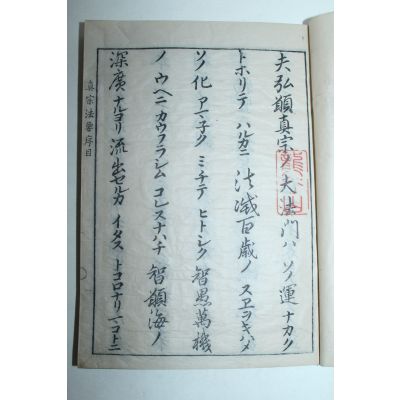 夫弘願真宗ノ大法門ハソノ運ナカク
トホリテハルカニ法滅百歳ノスヱヲキハメ
ソノ化アマネクミチテヒトシク智愚萬機
ノウヘニカウフラシムコレスナハチ智願海ノ
深廣ナルヨリ流出セルカイタストコロナリコトニ
真宗法要序目